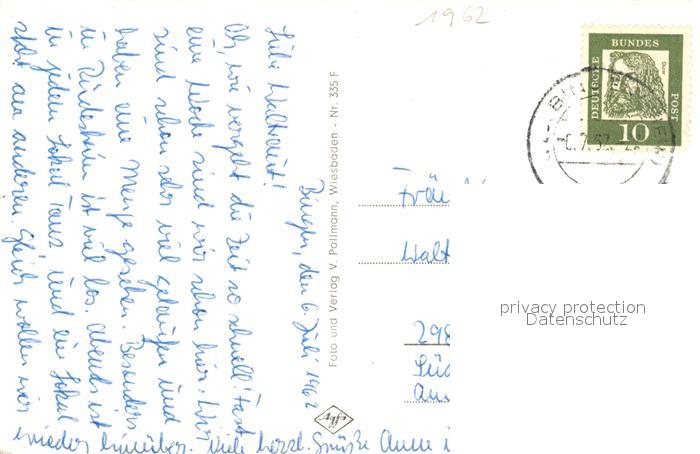 1962
Bingen, den 6. Juli 1962
Liebe Waltraut!
Oh, wie vergeht die Zeit so schnell! Fast
eine Woche sind wir schon hier. Wir
sind schon sehr viel gelaufen und
haben eine Menge gesehen. Besonders
in Rüdesheim ist viel los. Abends ist
in jedem Lokal Tanz und ein Lokal
steht am anderen. Gleich wollen wir
wieder hinüber. Viele herzl. Grüße Anne
Foto und Verlag V. Pallmann, Wiesbaden - Nr. 335 F
Agfa
DEUTSCHE BUNDES POST
Dürer
10
BIN
Fräu
Walt
298
privacy protection
Datenschutz